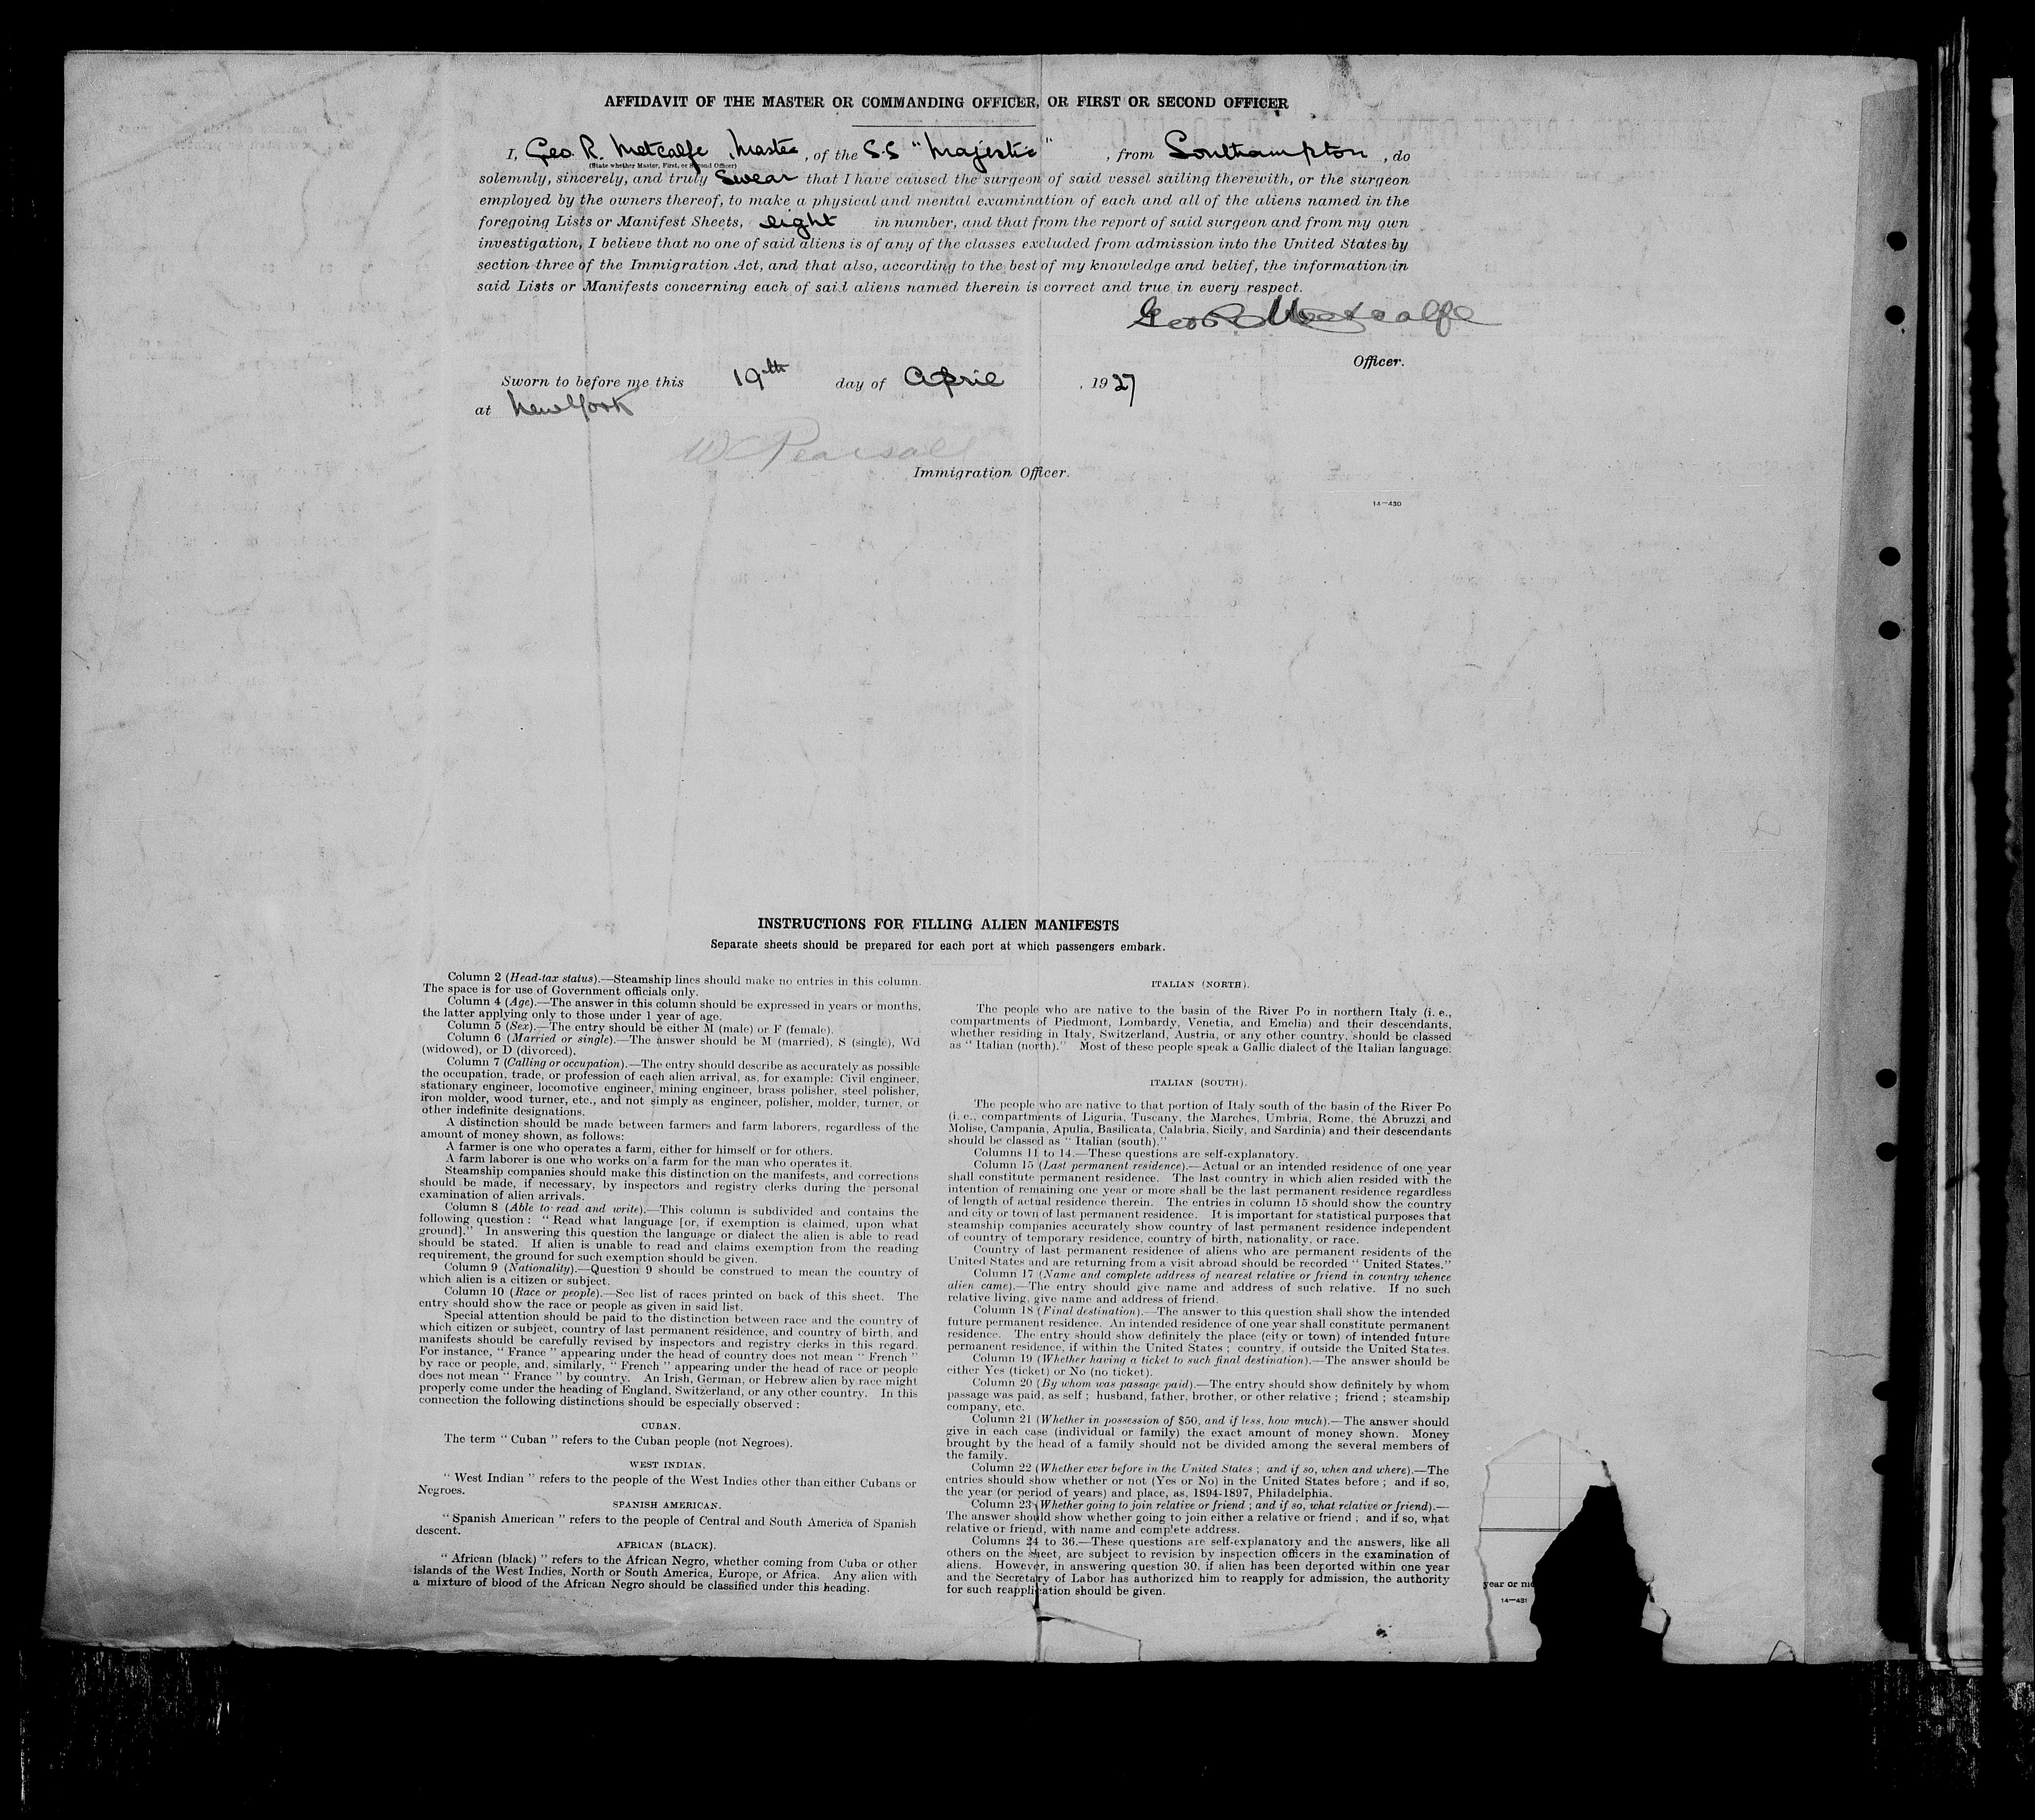 AFFIDAVIT OF THE MASTER OR COMMANDING OFFICER, OR FIRST OR SECOND OFFICER
I, Geo. R. Metcalfe, Master, of the S.S "Majestic", from Southampton, do
(State whether Master, First, or Second Officer)
solemnly, sincerely, and truly swear that I have caused the surgeon of said vessel sailing therewith, or the surgeon
employed by the owners thereof, to make a physical and mental examination of each and all of the aliens named in the
foregoing Lists or Manifest Sheets, eight in number, and that from the report of said surgeon and from my own
investigation, I believe that no one of said aliens is of any of the classes excluded from admission into the United States by
section three of the Immigration Act, and that also, according to the best of my knowledge and belief, the information in
said Lists or Manifests concerning each of said aliens named therein is correct and true in every respect.
Geo R Metcalfe
Officer.
Sworn to before me this 19th day of April, 1927
at New York
W C Pearsall
Immigration Officer.
14—430
INSTRUCTIONS FOR FILLING ALIEN MANIFESTS
Separate sheets should be prepared for each port at which passengers embark.
Column 2 (Head-tax status).—Steamship lines should make no entries in this column.
The space is for use of Government officials only.
Column 4 (Age).—The answer in this column should be expressed in years or months,
the latter applying only to those under 1 year of age.
Column 5 (Sex).—The entry should be either M (male) or F (female).
Column 6 (Married or single).—The answer should be M (married), S (single), Wd
(widowed), or D (divorced).
Column 7 (Calling or occupation).—The entry should describe as accurately as possible
the occupation, trade, or profession of each alien arrival, as, for example: Civil engineer,
stationary engineer, locomotive engineer, mining engineer, brass polisher, steel polisher,
iron molder, wood turner, etc., and not simply as engineer, polisher, molder, turner, or
other indefinite designations.
A distinction should be made between farmers and farm laborers, regardless of the
amount of money shown, as follows:
A farmer is one who operates a farm, either for himself or for others.
A farm laborer is one who works on a farm for the man who operates it.
Steamship companies should make this distinction on the manifests, and corrections
should be made, if necessary, by inspectors and registry clerks during the personal
examination of alien arrivals.
Column 8 (Able to read and write).—This column is subdivided and contains the
following question : " Read what language [or, if exemption is claimed, upon what
ground]." In answering this question the language or dialect the alien is able to read
should be stated. If alien is unable to read and claims exemption from the reading
requirement, the ground for such exemption should be given.
Column 9 (Nationality).—Question 9 should be construed to mean the country of
which alien is a citizen or subject.
Column 10 (Race or people).—See list of races printed on back of this sheet. The
entry should show the race or people as given in said list.
Special attention should be paid to the distinction between race and the country of
which citizen or subject, country of last permanent residence, and country of birth, and
manifests should be carefully revised by inspectors and registry clerks in this regard.
For instance, " France " appearing under the head of country does not mean " French "
by race or people, and, similarly, " French " appearing under the head of race or people
does not mean " France " by country. An Irish, German, or Hebrew alien by race might
properly come under the heading of England, Switzerland, or any other country. In this
connection the following distinctions should be especially observed :
CUBAN.
The term " Cuban " refers to the Cuban people (not Negroes).
WEST INDIAN.
" West Indian " refers to the people of the West Indies other than either Cubans or
Negroes.
SPANISH AMERICAN.
" Spanish American " refers to the people of Central and South America of Spanish
descent.
AFRICAN (BLACK).
" African (black) " refers to the African Negro, whether coming from Cuba or other
islands of the West Indies, North or South America, Europe, or Africa. Any alien with
a mixture of blood of the African Negro should be classified under this heading.
ITALIAN (NORTH).
The people who are native to the basin of the River Po in northern Italy (i. e.,
compartments of Piedmont, Lombardy, Venetia, and Emelia) and their descendants,
whether residing in Italy, Switzerland, Austria, or any other country, should be classed
as " Italian (north)." Most of these people speak a Gallic dialect of the Italian language.
ITALIAN (SOUTH).
The people who are native to that portion of Italy south of the basin of the River Po
(i. e., compartments of Liguria, Tuscany, the Marches, Umbria, Rome, the Abruzzi and
Molise, Campania, Apulia, Basilicata, Calabria, Sicily, and Sardinia) and their descendants
should be classed as " Italian (south)."
Columns 11 to 14.—These questions are self-explanatory.
Column 15 (Last permanent residence).—Actual or an intended residence of one year
shall constitute permanent residence. The last country in which alien resided with the
intention of remaining one year or more shall be the last permanent residence regardless
of length of actual residence therein. The entries in column 15 should show the country
and city or town of last permanent residence. It is important for statistical purposes that
steamship companies accurately show country of last permanent residence independent
of country of temporary residence, country of birth, nationality, or race.
Country of last permanent residence of aliens who are permanent residents of the
United States and are returning from a visit abroad should be recorded " United States."
Column 17 (Name and complete address of nearest relative or friend in country whence
alien came).—The entry should give name and address of such relative. If no such
relative living, give name and address of friend.
Column 18 (Final destination).—The answer to this question shall show the intended
future permanent residence. An intended residence of one year shall constitute permanent
residence. The entry should show definitely the place (city or town) of intended future
permanent residence, if within the United States ; country, if outside the United States.
Column 19 (Whether having a ticket to such final destination).—The answer should be
either Yes (ticket) or No (no ticket).
Column 20 (By whom was passage paid).—The entry should show definitely by whom
passage was paid, as self ; husband, father, brother, or other relative ; friend ; steamship
company, etc.
Column 21 (Whether in possession of $50, and if less, how much).—The answer should
give in each case (individual or family) the exact amount of money shown. Money
brought by the head of a family should not be divided among the several members of
the family.
Column 22 (Whether ever before in the United States ; and if so, when and where).—The
entries should show whether or not (Yes or No) in the United States before ; and if so,
the year (or period of years) and place, as, 1894-1897, Philadelphia.
Column 23 (Whether going to join relative or friend ; and if so, what relative or friend).—
The answer should show whether going to join either a relative or friend ; and if so, what
relative or friend, with name and complete address.
Columns 24 to 36.—These questions are self-explanatory and the answers, like all
others on the sheet, are subject to revision by inspection officers in the examination of
aliens. However, in answering question 30, if alien has been deported within one year
and the Secretary of Labor has authorized him to reapply for admission, the authority
for such reapplication should be given.
year or mo
14—431